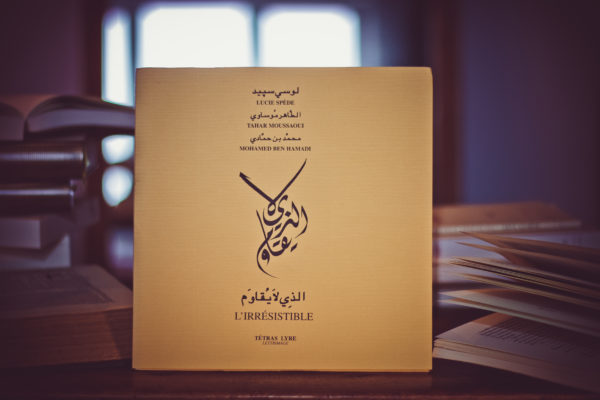 لوسي سپيد
LUCIE SPÈDE
الطّاهر مُوساوي
TAHAR MOUSSAOUI
محمّد بن حمّادي
MOHAMED BEN HAMADI
الذي لا يقاوم
الذِي لاَ يُقاوَم
L'IRRÉSISTIBLE
TÉTRAS LYRE
LETTRIMAGE